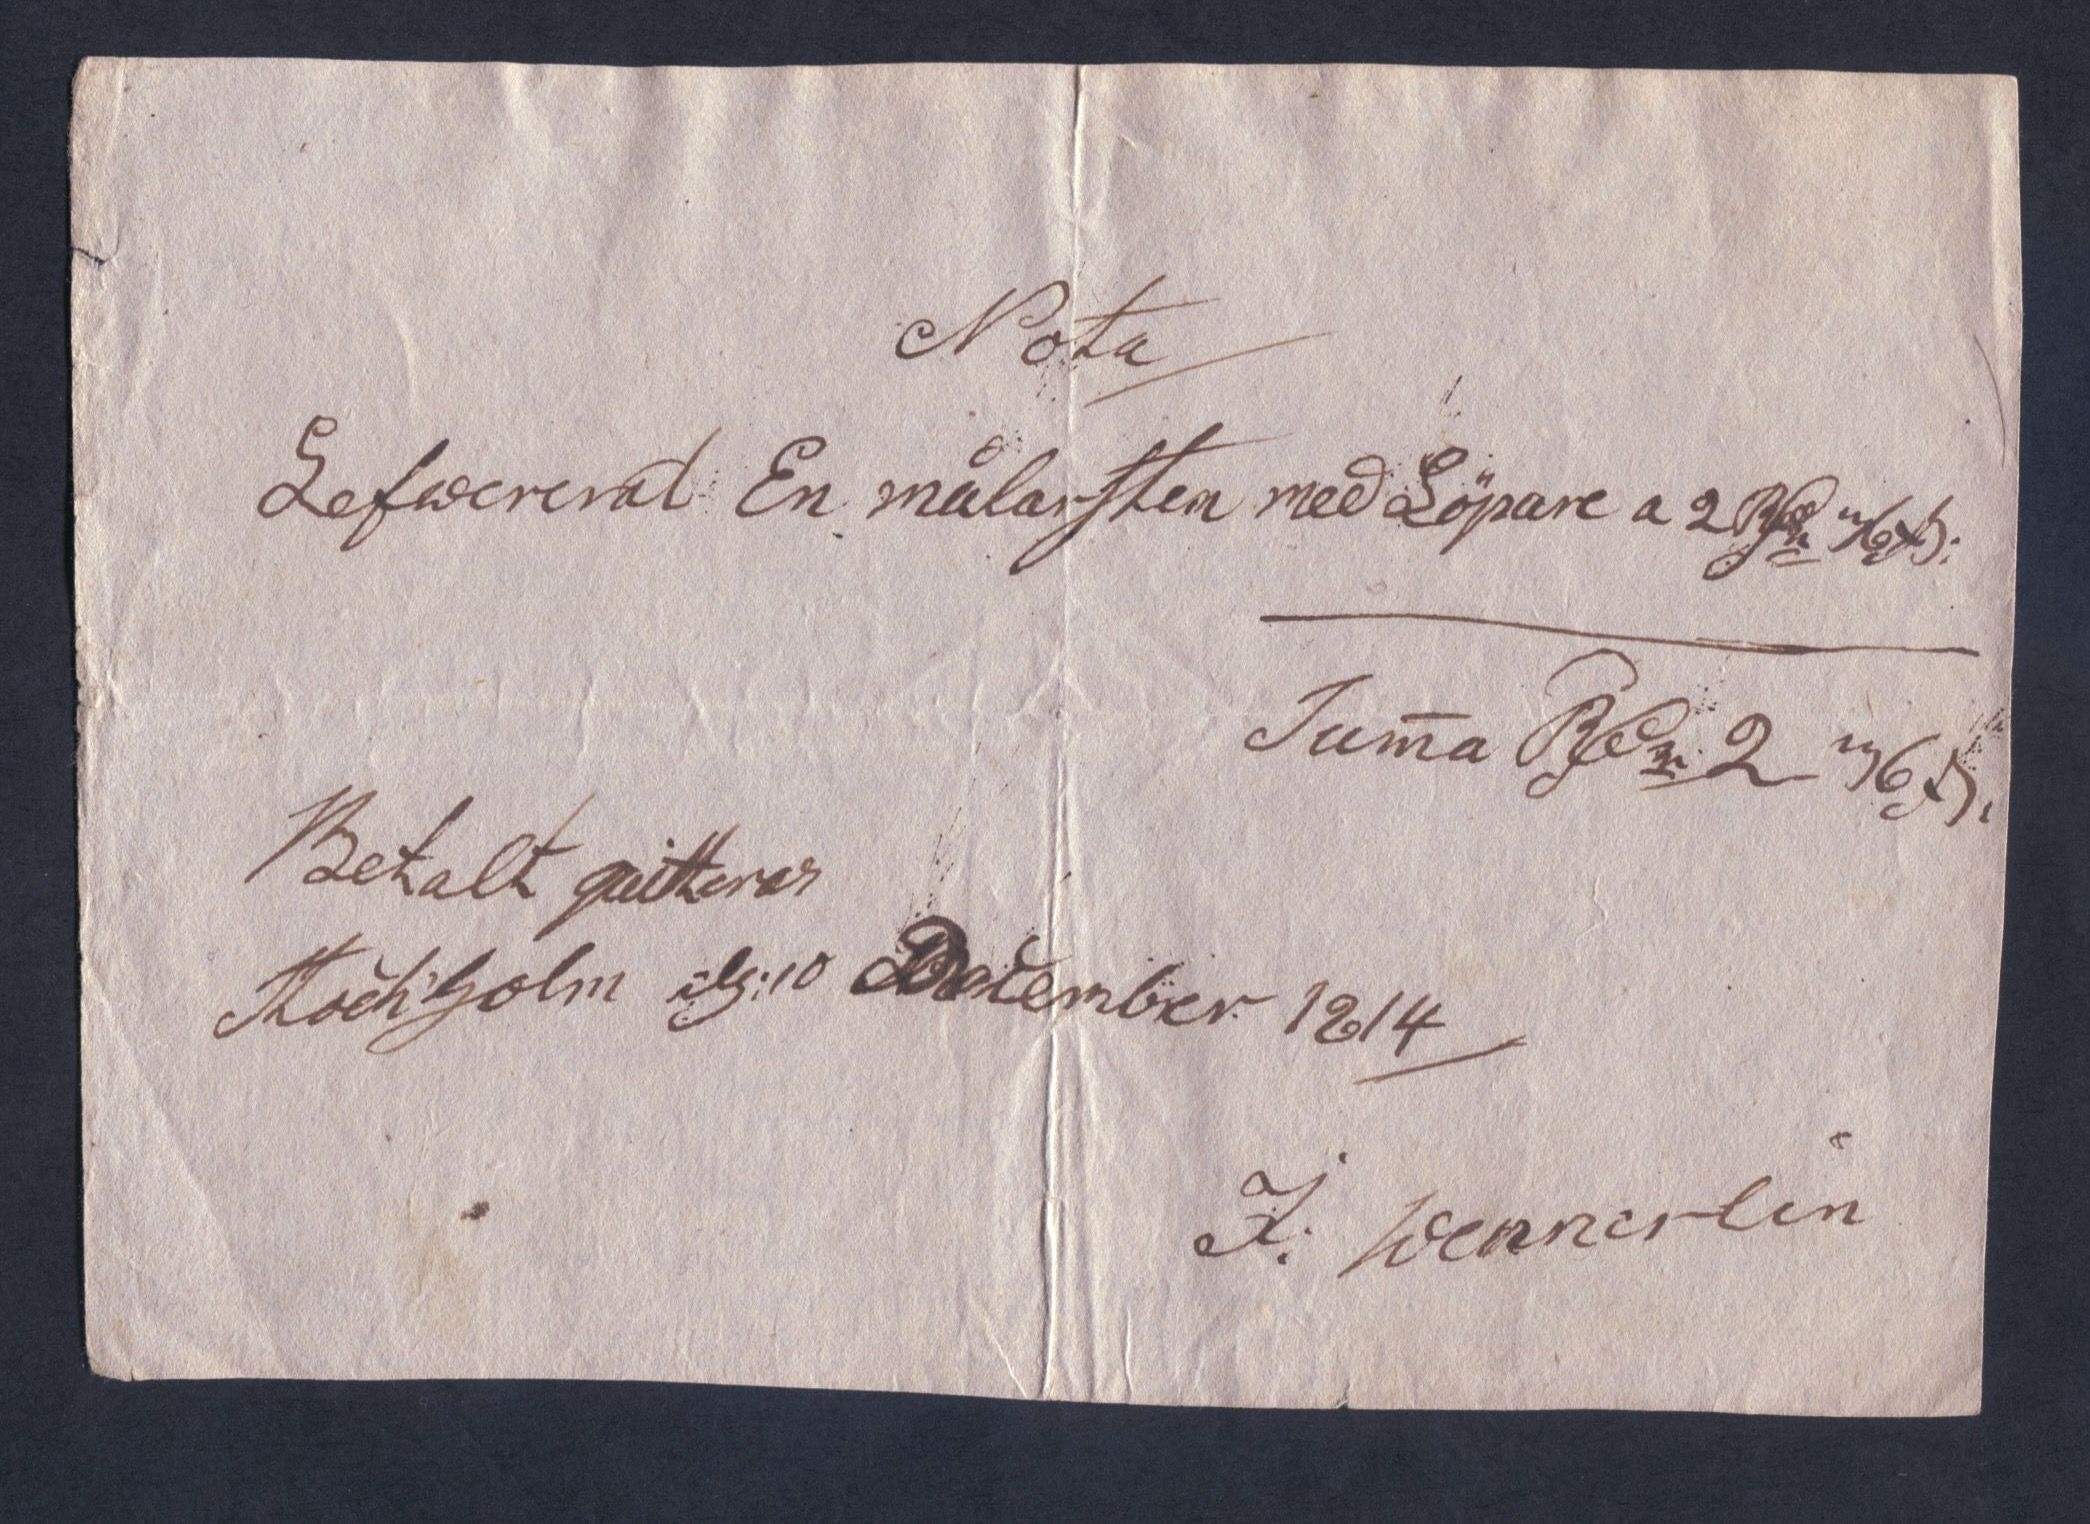 Nota
Lefwererad En målarsten med Löpare a 2 Rd 16 s:
Summa Rd 2 16 s.
Betalt quitteras
Stockholm d: 10 December 1814
J: Wennerlin